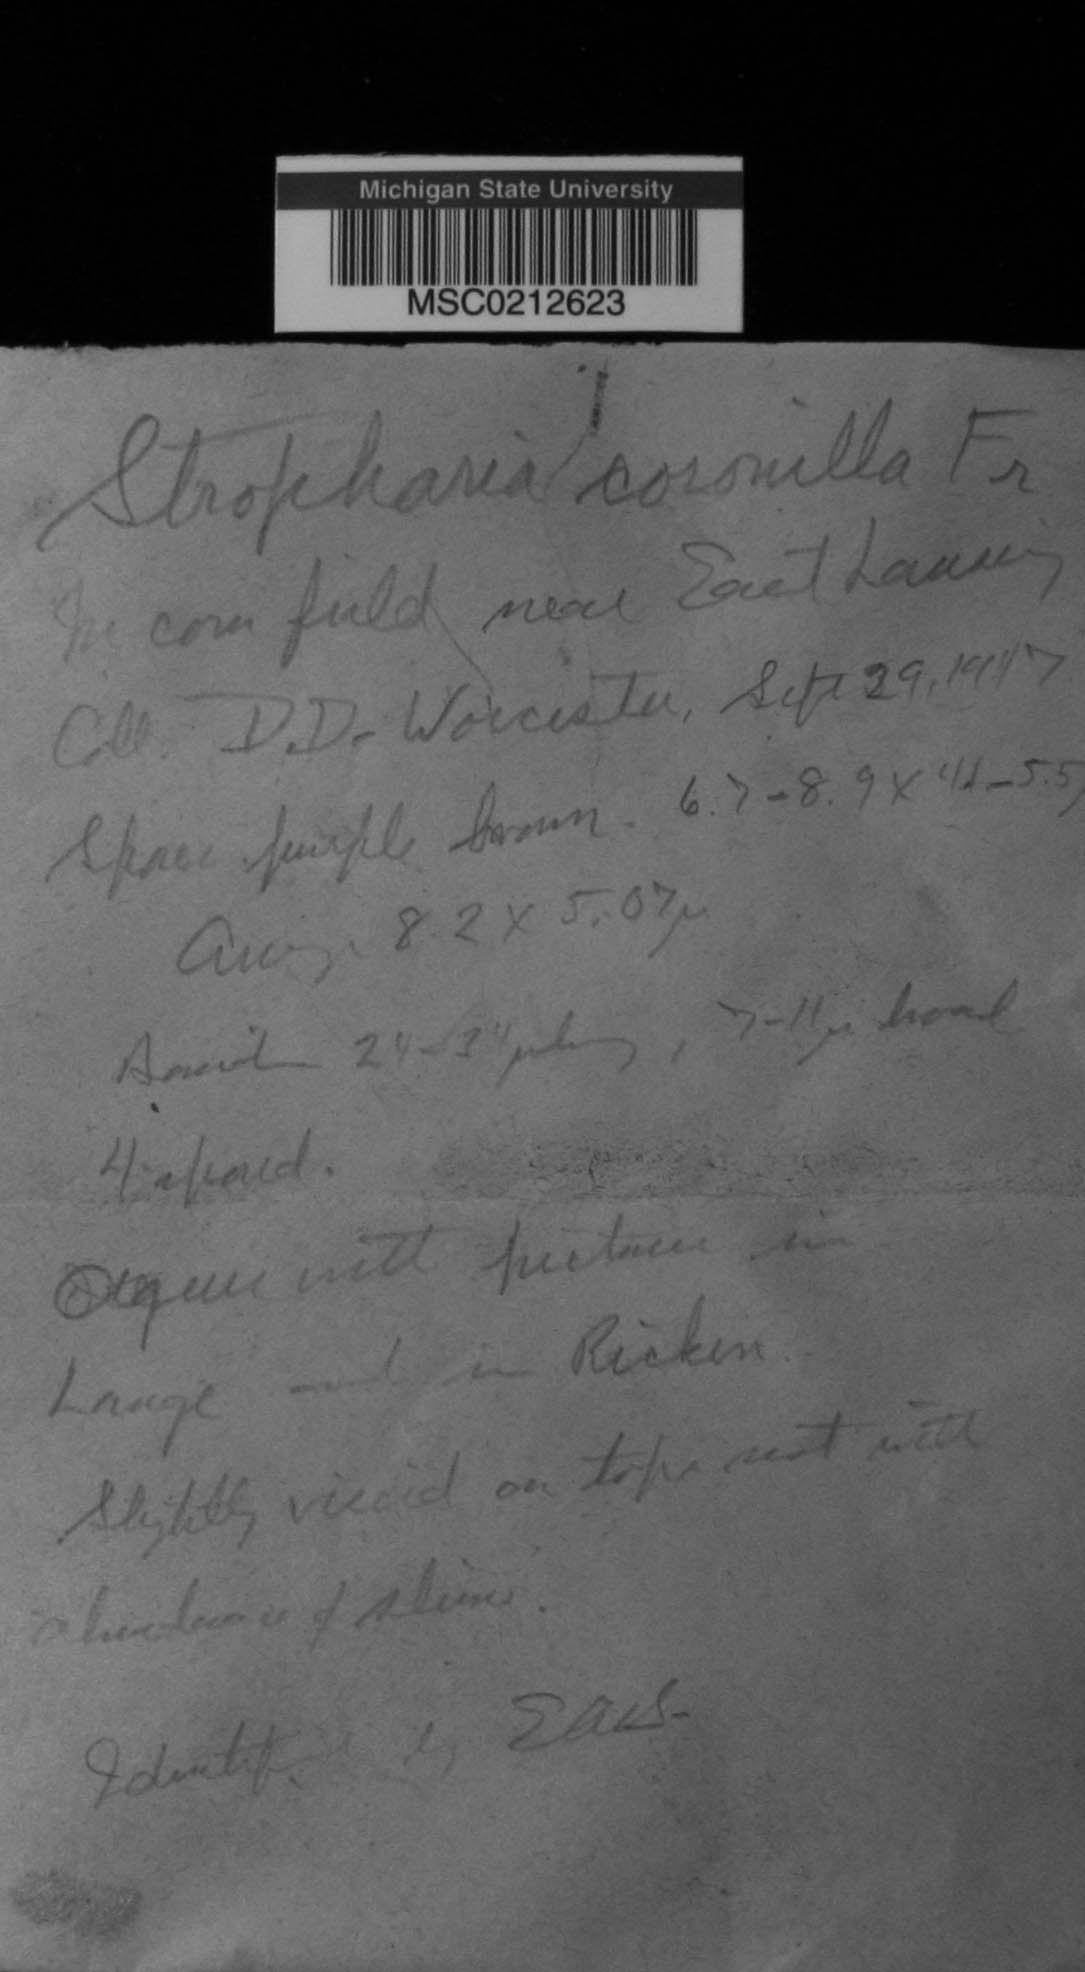 Michigan State University
MSC0212623
Stropharia coronilla Fr
In corn field near East Lansing
Coll. D.D. Worcester, Sept 29, 1947
Spores purple brown. 6.7-8.9 x 4.1-5.5
Aveg. 8.2 x 5.07μ
Basidia 24-34μ long, 7-11μ broad
4-spored.
Agrees with pictures in
Lange and in Ricken.
Slightly viscid on top not with
abundance of slime.
Identified by